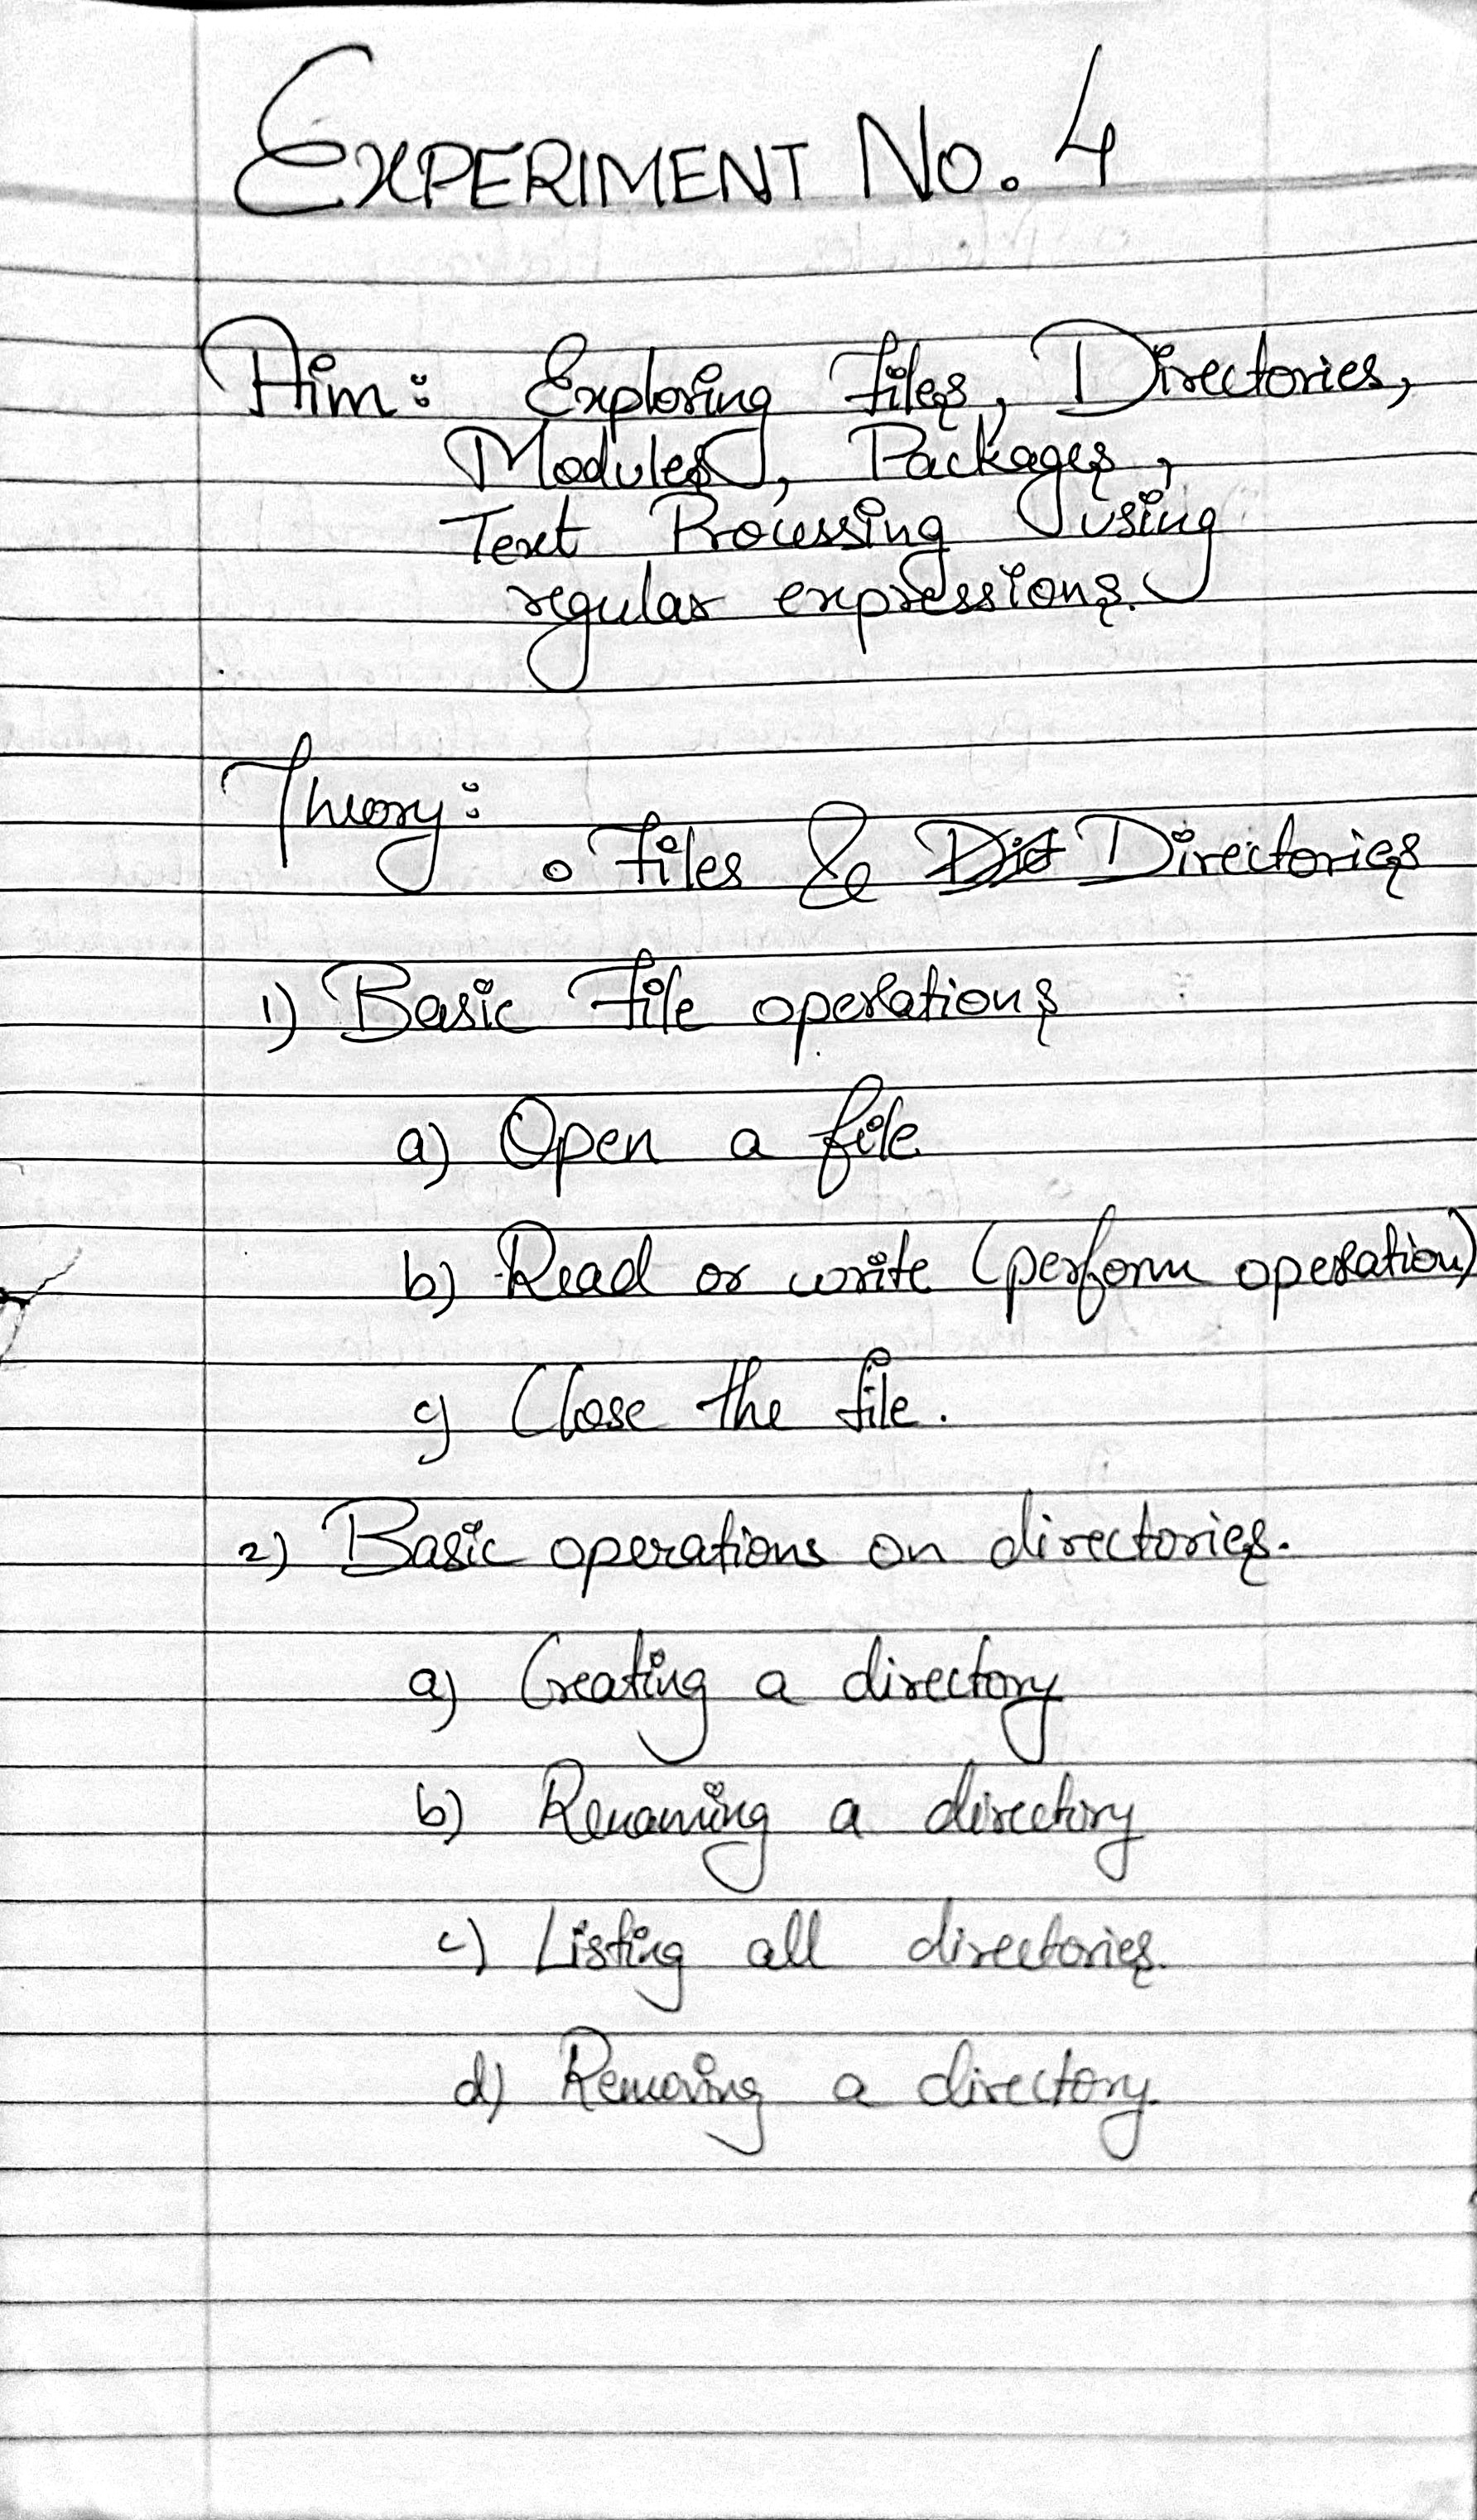 EXPERIMENT NO. 4
Aim: Exploring Files, Directories,
Modules, Packages,
Text Processing using
regular expressions.
Theory:
o Files & Dict Directories
1) Basic File operations
a) Open a file
b) Read or write (perform operation)
c) Close the file.
2) Basic operations on directories.
a) Creating a directory
b) Renaming a directory
c) Listing all directories.
d) Removing a directory.